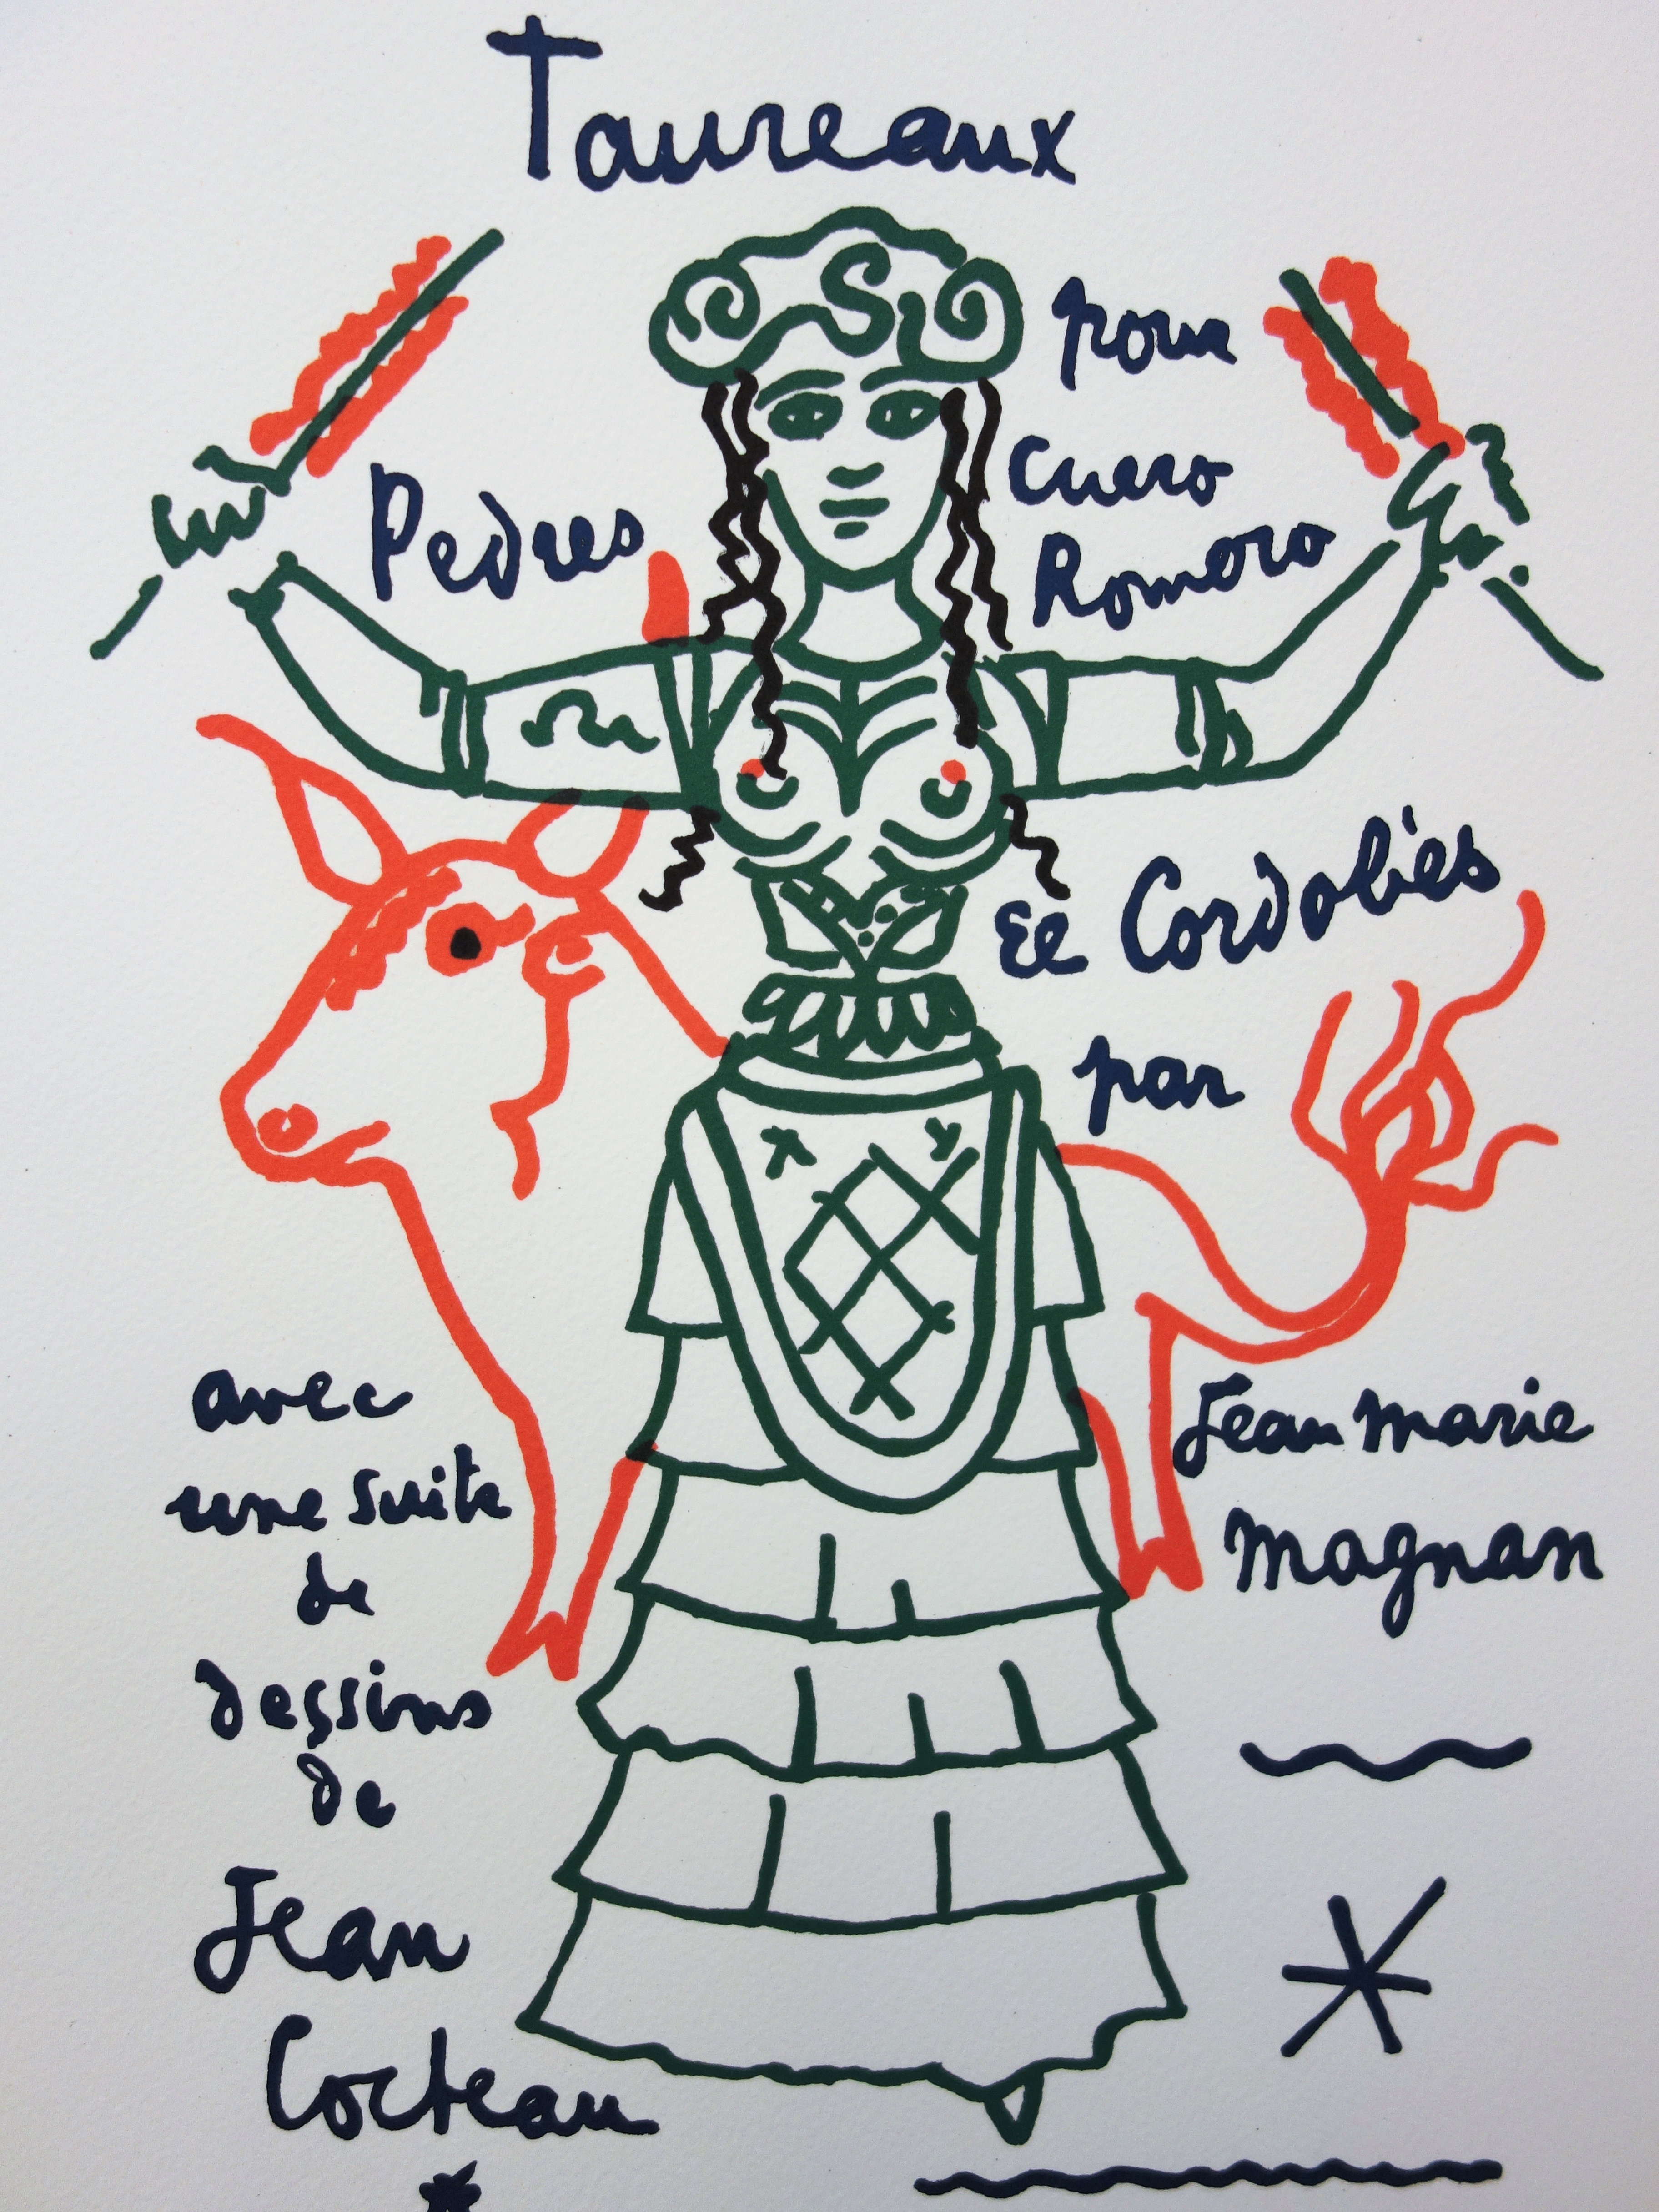 Taureaux
pour
Pedres
Cuero
Romero
El Cordobès
par
avec
une suite
de
dessins
de
Jean
Cocteau
Jean marie
magnan